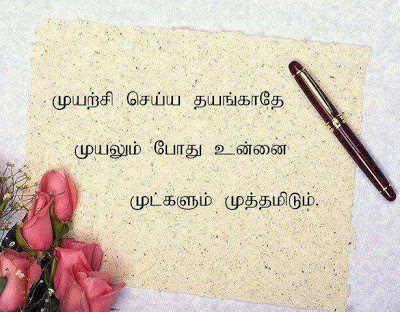 முயற்சி செய்ய தயங்காதே
முயலும் போது உன்னை
முட்களும் முத்தமிடும்.